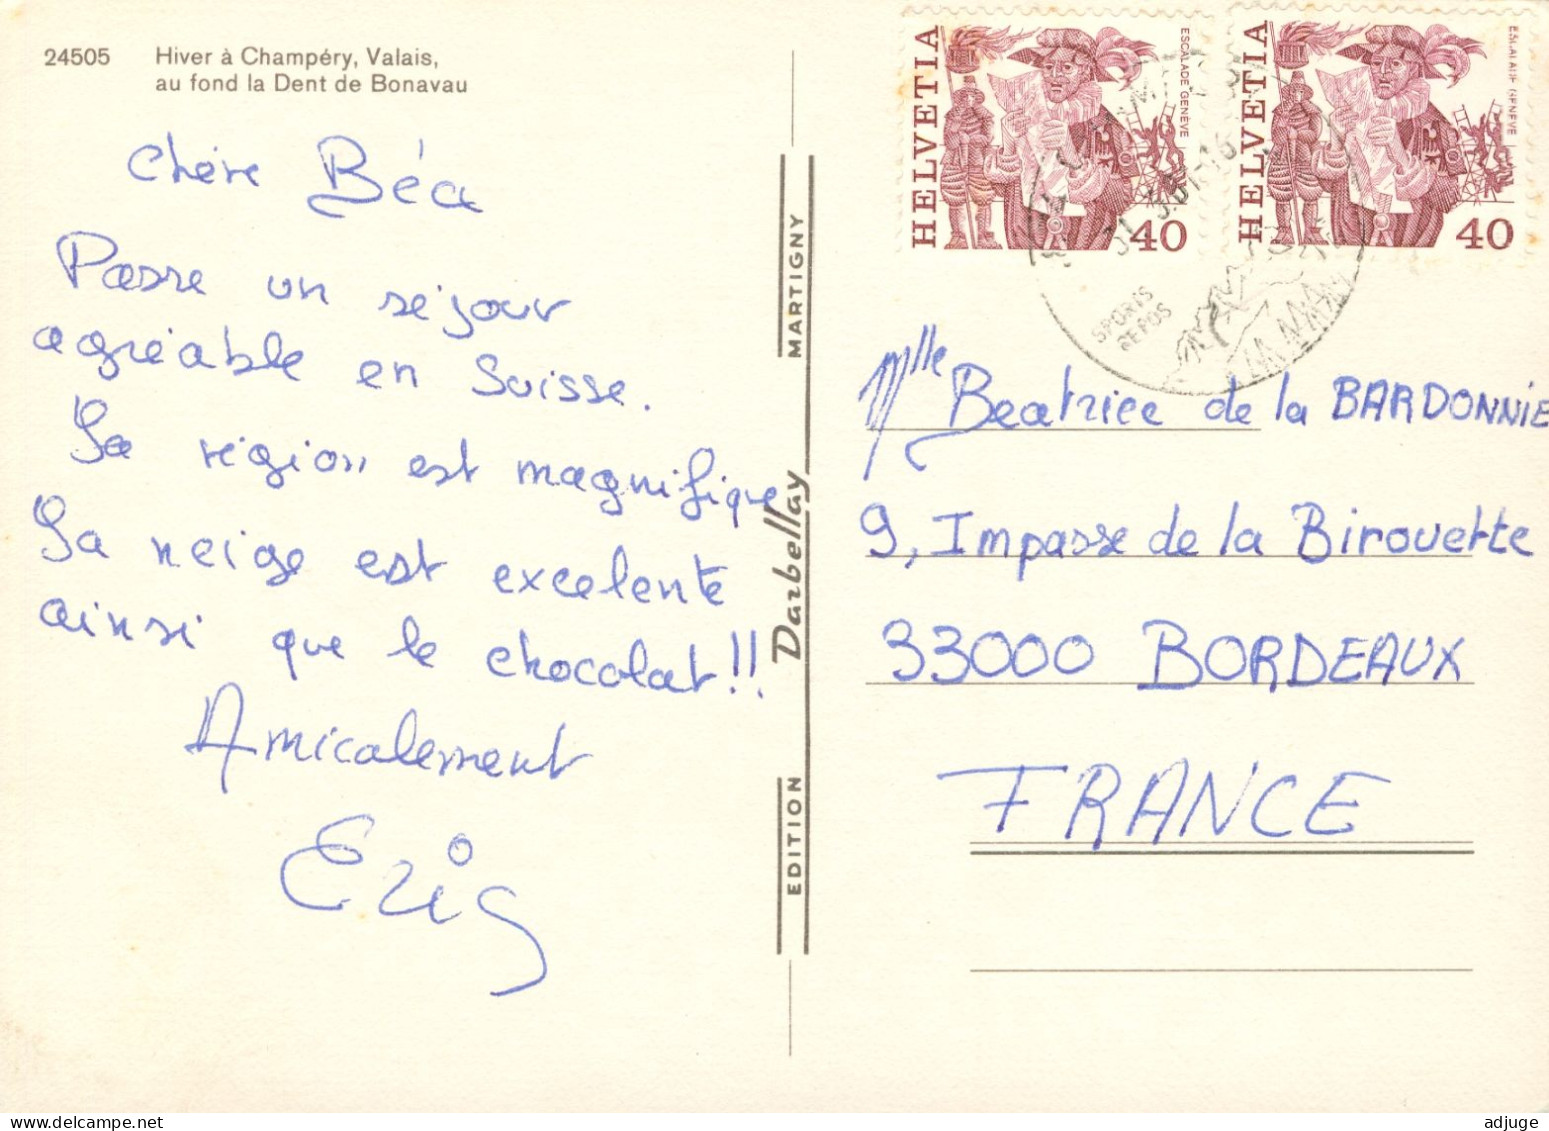 24505 Hiver à Champéry, Valais,
au fond la Dent de Bonavau
Chère Béa
Passe un séjour
agréable en Suisse.
La région est magnifique
La neige est excelente
ainsi que le chocolat!!
Amicalement
Eric
EDITION Darbellay MARTIGNY
HELVETIA
ESCALADE GENEVE
40
HELVETIA
ESCALADE GENEVE
40
SPORTS
REPOS
Mlle Beatrice de la BARDONNIE
9, Impasse de la Birouette
33000 BORDEAUX
FRANCE
adjuge